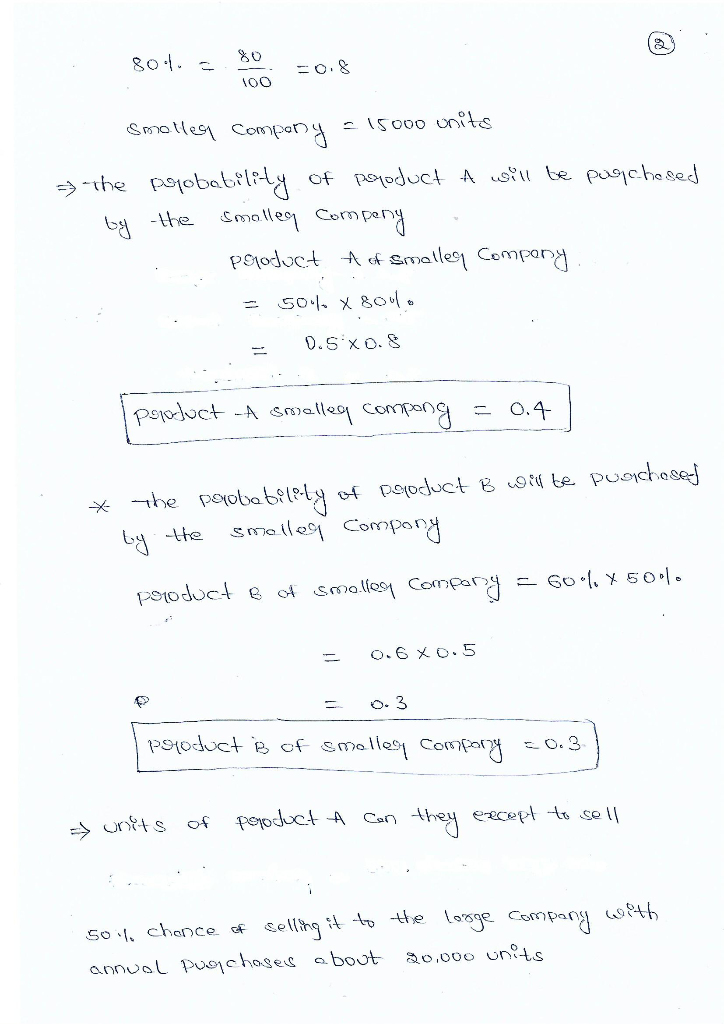 2
80% = 80/100 = 0.8
smaller company = 15000 units
⇒ The probability of product A will be purchased
by the smaller company
product A of smaller company
= 50% x 80%
= 0.5 x 0.8
product - A smaller company = 0.4
* The probability of product B will be purchased
by the smaller company
product B of smaller company = 60% x 50%
= 0.6 x 0.5
= 0.3
product B of smaller company = 0.3
⇒ units of product A can they except to sell
50% chance of selling it to the large company with
annual purchases about 20,000 units